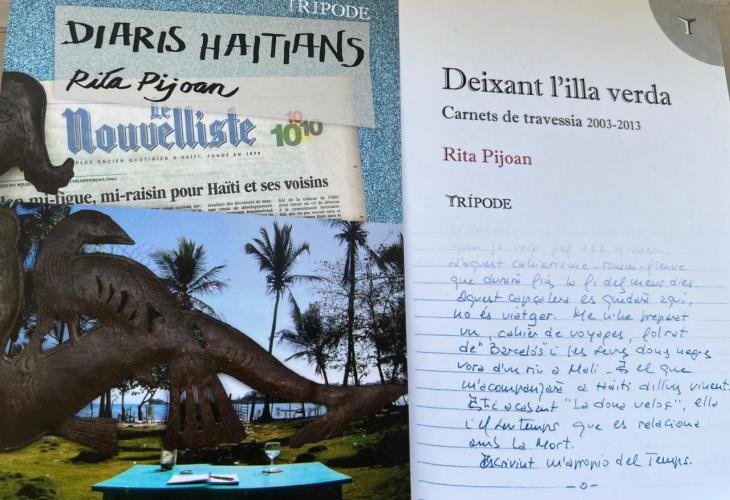 TRÍPODE
DIARIS HAITIANS
Rita Pijoan
Le
Nouvelliste
10 10 10
PLUS ANCIEN QUOTIDIEN D'HAÏTI, FONDÉ EN 1898
DÉVELOPPEMENT/ONU
mi-figue, mi-raisin pour Haïti et ses voisins
Deixant l'illa verda
Carnets de travessia 2003-2013
Rita Pijoan
TRÍPODE
d'aquest cahierisme-roman-fleuve
que durarà fins la fi del meus dies.
Aquest capçalera es quedarà aquí,
no és viatger. Me n'he preparat
un, cahier de voyages, folrat
de "Barceló" i les seves dones negres
vora d'un riu a Mali - És el que
m'acompanyarà a Haïti dilluns vinent.
Estic acabant "La dona veloç", ella
i el seu temps que es relaciona
amb la Mort.
Escrivint m'apropio del Temps.
-o-